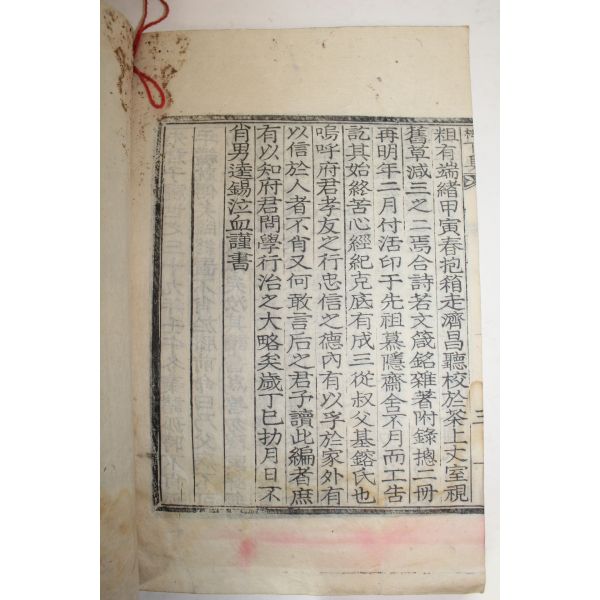 粗有端緖甲寅春抱箱走濟昌聽校於茶上丈室視
舊草減三之二焉合詩若文箴銘雜著附錄摠二冊
再明年二月付活印于先祖慕隱齋舍不月而工告
訖其始終苦心經紀克底有成三從叔父基鎔氏也
嗚呼府君孝友之行忠信之德內有以孚於家外有
以信於人者不肖又何敢言后之君子讀此編者庶
有以知府君問學行治之大略矣歲丁巳月日不
肖男達錫泣血謹書